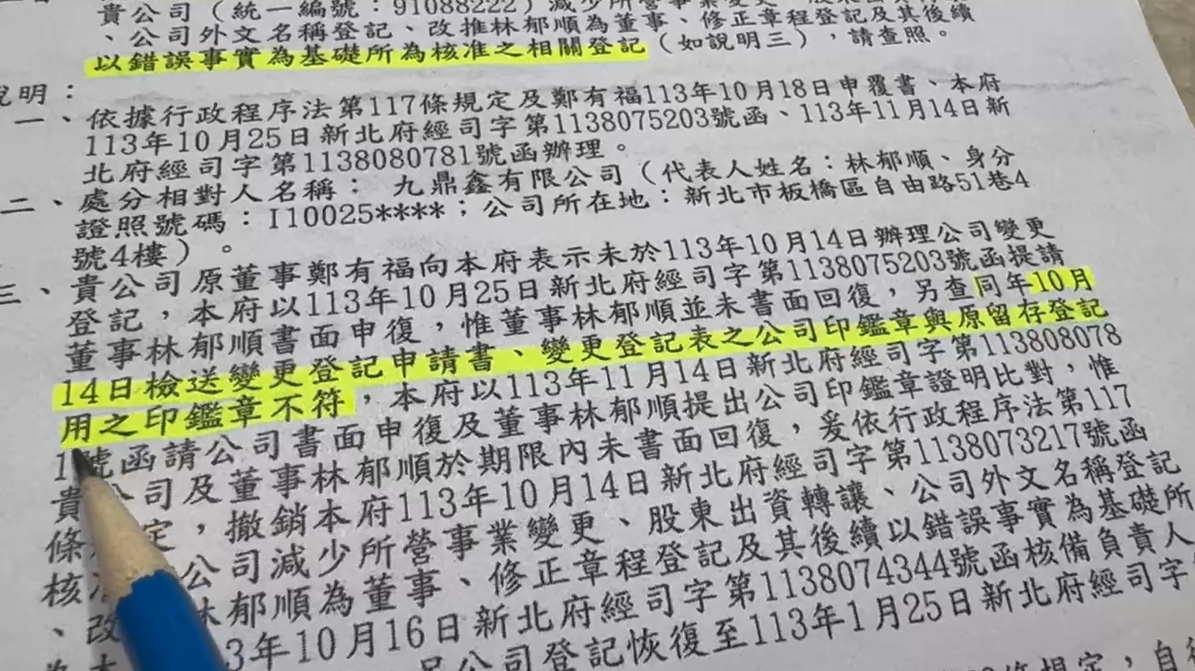 貴公司（統一編號：91088222）減少所營事業變更、股東出資
、公司外文名稱登記、改推林郁順為董事、修正章程登記及其後續
以錯誤事實為基礎所為核准之相關登記（如說明三），請查照。
說明：
一、依據行政程序法第117條規定及鄭有福113年10月18日申覆書、本府
113年10月25日新北府經司字第1138075203號函、113年11月14日新
北府經司字第1138080781號函辦理。
二、處分相對人名稱：九鼎鑫有限公司（代表人姓名：林郁順、身分
證照號碼：I10025****；公司所在地：新北市板橋區自由路51巷4
號4樓）。
三、貴公司原董事鄭有福向本府表示未於113年10月14日辦理公司變更
登記，本府以113年10月25日新北府經司字第1138075203號函提請
董事林郁順書面申復，惟董事林郁順並未書面回復，另查同年10月
14日檢送變更登記申請書、變更登記表之公司印鑑章與原留存登記
用之印鑑章不符，本府以113年11月14日新北府經司字第113808078
1號函請公司書面申復及董事林郁順提出公司印鑑章證明比對，惟
貴公司及董事林郁順於期限內未書面回復，爰依行政程序法第117
條定，撤銷本府113年10月14日新北府經司字第1138073217號函
核公司減少所營事業變更、股東出資轉讓、公司外文名稱登記
、改林郁順為董事、修正章程登記及其後續以錯誤事實為基礎所
3年10月16日新北府經司字第1138074344號函核備負責人
公司登記恢復至113年1月25日新北府經司字